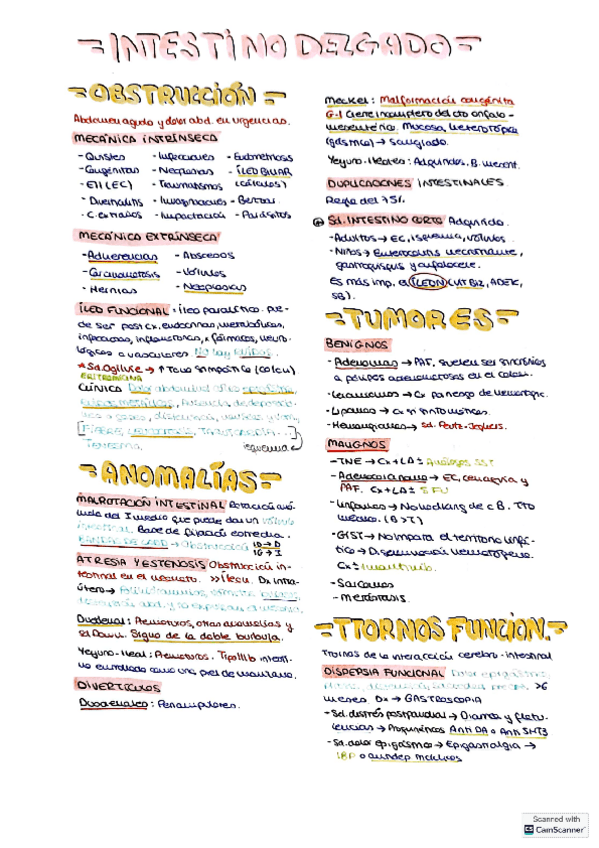 INTESTINO DELGADO
OBSTRUCCIÓN
Abdomen agudo y dolor abd. en urgencias.
MECÁNICA INTRÍNSECA
- Quistes - Infecciones - Endometriosis
- Congénitas - Neoplasias - ÍLEO BILIAR
- EII (EC) - Traumatismos (Cálculos)
- Diverticulitis - Invaginaciones - Bezoar
- C. extraños - Impactación - Parásitos
MECÁNICA EXTRÍNSECA
- Adherencias - Abscesos
- Carcinomatosis - Vólvulos
- Hernias - Neoplasias
ÍLEO FUNCIONAL: íleo paralítico. Pue-
de ser post cx, endocrinas, metabólicas,
infecciosas, inflamatorias, x fármacos, neuro-
lógicas o vasculares. No hay ruidos.
*Sd. Ogilvie → ↑ Tono simpático (colon)
ERITROMICINA
Clínica Dolor abdominal
ruidos metálicos, Ausencia de deposicio-
nes o gases, distensión,
[FIEBRE, LEUCOCITOSIS, TAQUICARDIA...]
isquemia
ANOMALÍAS
MALROTACIÓN INTESTINAL Rotación anó-
mala del I medio que puede dar un vólvulo
intestinal. Base de fijación estrecha.
BANDAS DE LADD → Obstrucción ID → D
IG → I
ATRESIA Y ESTENOSIS Obstrucción in-
testinal en el neonato. >> Íleon. Dx intra-
útero →
Duodenal: Prematuros, otras anomalías y
el Down. Signo de la doble burbuja.
Yeyuno-Ileal: Prematuros. Tipo IIIb intesti-
no enrollado como una piel de manzana.
DIVERTÍCULOS
Duodenales: Periampulares.
Meckel: Malformación congénita
G-I Cierre incompleto del cto onfalo-
mesentérico. Mucosa heterotópica
(gástrica) → Sangrado.
Yeyuno-ileales: Adquiridos. B. mesent.
DUPLICACIONES INTESTINALES
Regla del
Sd. INTESTINO CORTO Adquirido.
- Adultos → EC, isquemia, vólvulos
- Niños → Enterocolitis necrotizante,
gastrosquisis y onfalocele.
Es más imp. el ÍLEON (VIT B12, ADEK,
SB).
TUMORES
BENIGNOS
- Adenomas → PAF, suelen ser sincrónicos
a pólipos adenomatosos en el colon.
- Leiomiomas → Cx por riesgo de hemorragia.
- Lipomas → Cx si sintomáticos.
- Hemangiomas → Sd. Peutz-Jeghers.
MALIGNOS
- TNE → Cx + LA ± Análogos SST
- Adenocarcinoma → EC, celiaquía y
PAF. Cx + LA ± 5FU
- Linfomas → No hodking de c B. TTO
médico. (B > T)
- GIST → No impara el territorio linfá-
tico → Diseminación hematógena.
Cx ± Imatinib.
- Sarcomas
- Metástasis.
TTORNOS FUNCION.
Ttornos de la interacción cerebro-intestinal
DISPEPSIA FUNCIONAL Dolor epigástrico,
>6
meses Dx → GASTROSCOPIA
- Sd. distrés postprandial → Diarrea y flatu-
lencias → Procinéticos Anti DA o Anti 5HT3
- Sd. dolor epigástrico → Epigastralgia →
IBP o antidep tricíclicos
Scanned with
CamScanner